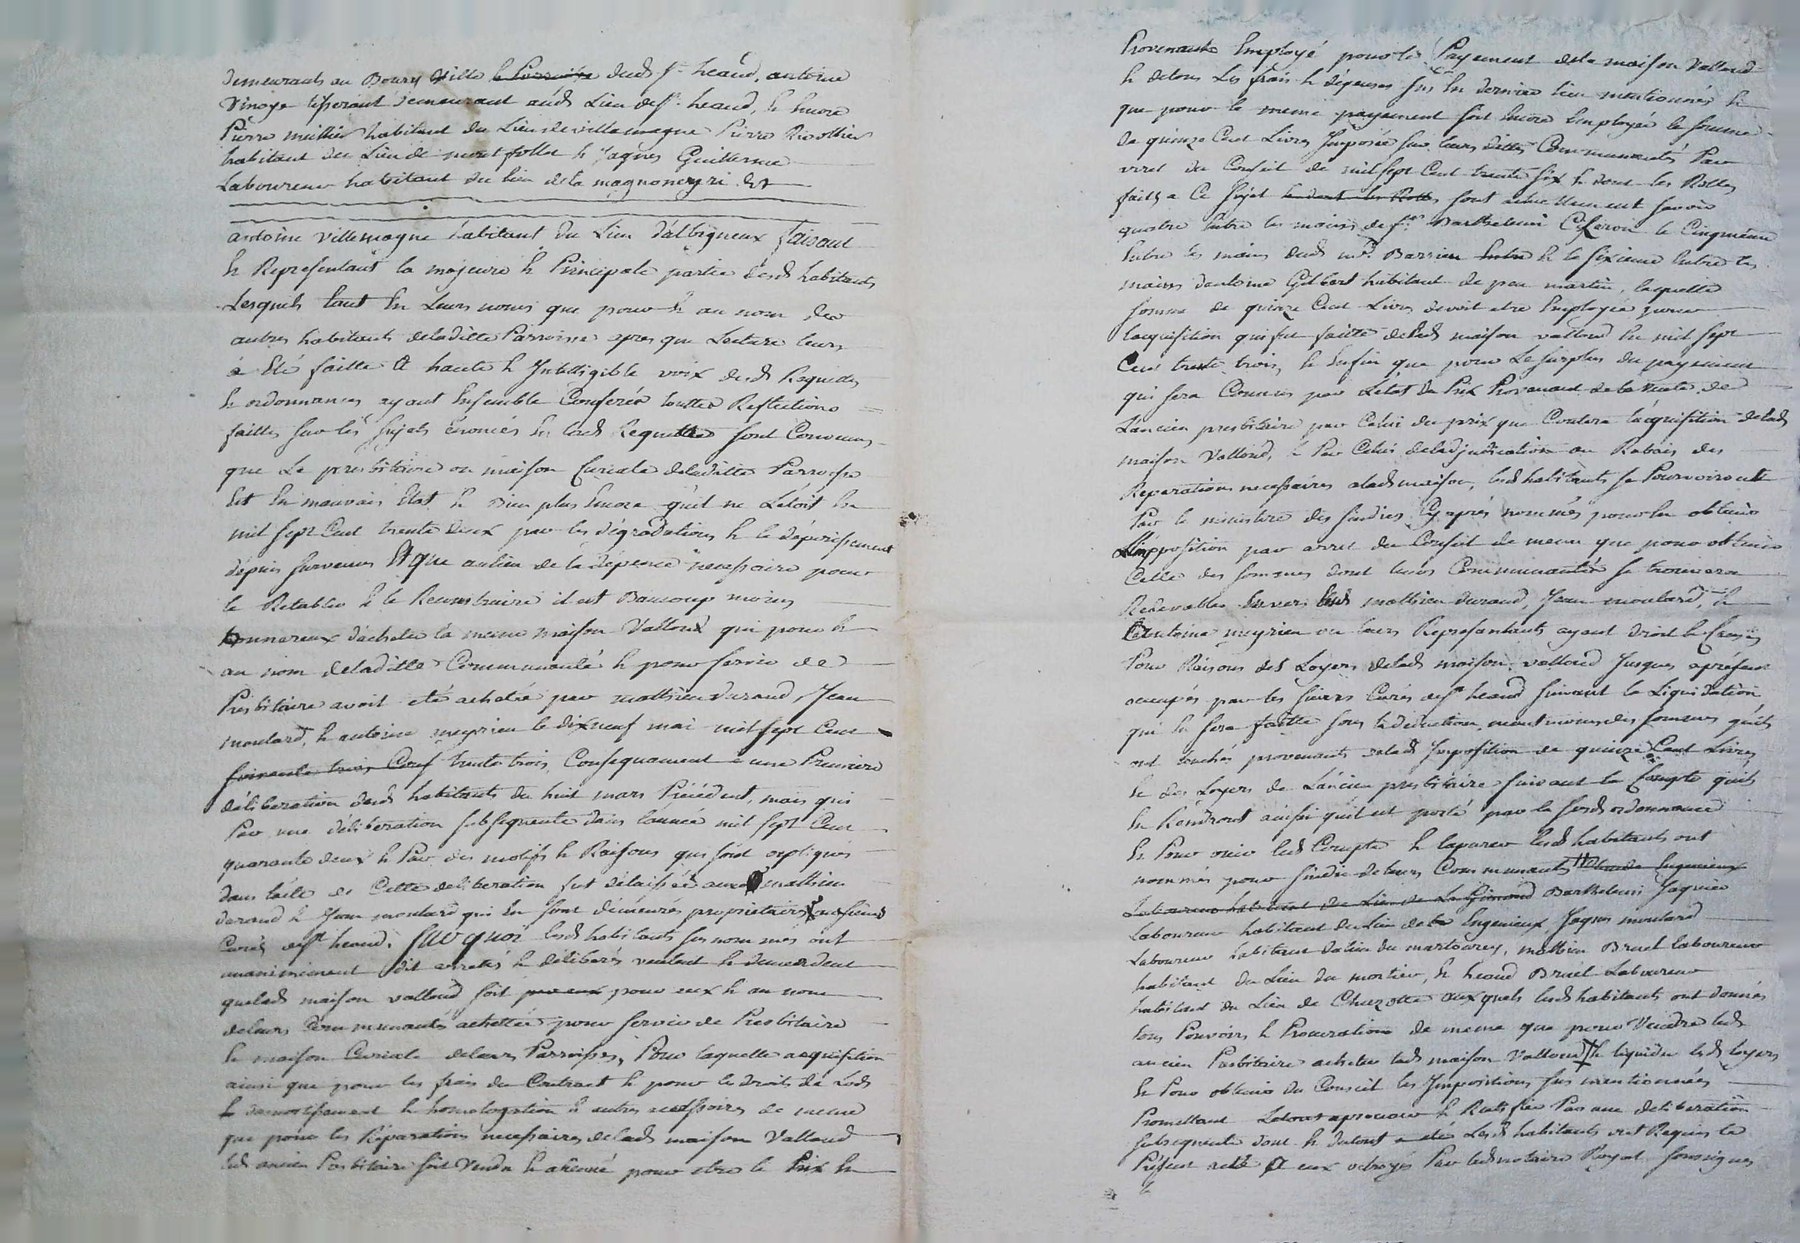 demeurants au Bourg Ville le Parroisse dud St heand, antoine
Vinoye tisserant demeurant aud Lieu de St heand, & encore
Pierre mellier habitant du Lieu de villemagne Pierre Ricollier
habitant du Lieu de montfollet & Jaques Guillerme
Laboureur habitant du lieu de la magnoneyri &
antoine villemagne habitant du Lieu d'albigneux faisant
& Representant la majeure & Principale partie desd habitants
Lesquels tant en Leurs noms que pour & au nom des
autres habitants deladitte Parroisse apres que Lecture leurs
a Eté faitte A haute & Intelligible voix desd Requetes
& ordonnances, ayant Ensemble Conferéz touttes Reflections
faittes sur les sujets énoncés En lad Requette sont Convenus
que Le presbitaire ou maison Curiale deladitte Parroisse
Est En mauvais Etat & Bien plus Encore qu'il ne L'étoit En
mil sept Cent trente deux par les dégradations & le dépérissement
dépuis survenus Et que au lieu de la dépence necessaire pour
le Retablir & le Reconstruire il est Baucoup moins
honnereux d'acheter la meme maison Valloud qui pour &
au nom deladitte Communauté & pour servir de
Presbitaire avoit eté achetée par mathieu durand, Jean
moulard, & antoine meyrieu le dixneuf mai mil sept Cent
soixante trois Cens trente trois, Consequament a une Premiere
déliberation desd habitants du huit mars Précédent, mais qui
Par une déliberation subsequente dans l'année mil sept Cent
quarante deux & Par des motifs & Raisons qui sont expliqués
dans l'acte de Cette deliberation fut délaissée auxd mathieu
durand & Jean moulard qui En sont démeurés propriétaires
Curés de St heand. Sur quoi lesd habitants susnommés ont
unanimement dit arretés & délibérés veulent & demandent
que lad maison valloud soit par eux pour eux & au nom
de leurs Communautés achettée pour servir de Presbitaire
& maison Curiale de leurs Parroisses, Pour laquelle acquisition
ainsi que pour les frais du Contract & pour le droits de Lods
& damortissement & homologation & autres necessaires de meme
que pour les Réparations necessaires de lad maison Valloud
led ancien Presbitaire soit Vendu & aliéné pour etre le Prix En
Provenant Employé pour le Payement de la maison Valloud
& de tous Les frais & dépenses sus En dernier lieu mentionnés &
que pour le meme payement soit Encore Employée la somme
de quinze Cent Livres Imposée sur leurs dittes Communautés Par
arret du Conseil de mil sept Cent trente six & dont les Rolles
faits a Ce sujet & dont les Rolles sont actuellement savoir
quatre Entre les mains de Sr Barthelemi Ciseron le Cinquieme
Entre les mains dud Me Barrieu Entre & le sixieme Entre les
mains dantoine Gilbert habitant de peu martin, laquelle
somme de quinze Cent Livres devoit etre Employée pour
l'acquisition qui fut faitte de lad maison valloud En mil sept
Cent trente trois, & Enfin que pour Le surplus du payement
qui sera Connus par L'etat du Prix Provenant de la vente de
L'ancien presbitaire par Celui du prix que Coutera l'acquisition de lad
maison Valloud, & Par Celui deladjudication au Rabais des
Reparations necessaires a lad maison, lesd habitants se Pourvoiront
Par le ministere des sindics Cy aprés nommés pour En obtenir
L'imposition par arret du Conseil de meme que pour obtenir
Celle des sommes dont leurs Communautés se trouvera
Redevables Envers lesd mathieu durand, Jean moulard, &
antoine meyrieu ou leurs Représentants ayant droit & Causes
Pour Raisons des Loyers de lad maison valloud Jusques aprésent
occupés par les sieurs Curés de St heand suivant la Liquidation
qui En sera faitte sous la déduction neantmoins des sommes qu'ils
ont touchés provenants de lad Imposition de quinze Cent Livres
& des Loyers de L'ancien presbitaire suivant la Compte qu'ils
En Rendront ainsi qu'il est porté par la susd ordonnance
& Pour ouir led Compte & lapurer lesd habitants ont
nommés pour sindics de leurs Communautés
Laboureur habitant du Lieu de La Gimond Barthelemi Jaquier
Laboureur habitant du Lieu de la Engenieux, Jaques moulard
Laboureur habitant du lieu du martourey, mathieu Bruel laboureur
habitant du Lieu du mortier, & heand Bruel Laboureur
habitant du Lieu de Chazotte auxquels lesd habitants ont donnés
tous Pouvoirs & Procurations de meme que pour Vendre led
ancien Presbitaire acheter lad maison Valloud & liquider lesd loyers
& Pour obtenir du Conseil les Impositions sus mentionnées
Promettant Letout aprouver & Ratifier Par une deliberation
subsequente dont & dutout a été Lesd habitants ont Requis Le
Présent acte A eux octroyés Par led notaire Royal soussignes